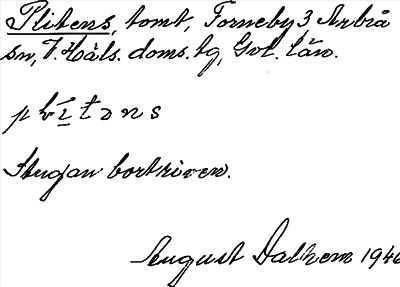 Plitens, tomt, Torneby 3 Arbrå
sn, V. Häls. doms. tg, Gvl. län.
Stugan bortriven.
August Dalhem 1946